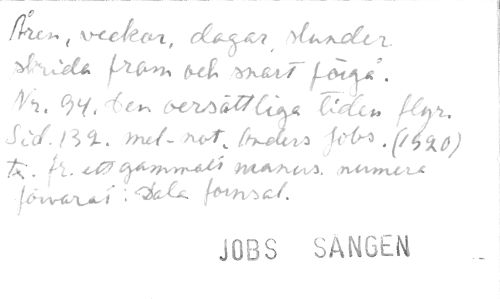 Åren, veckor, dagar, stunder
skrida fram och snart förgå.
Nr. 94. Den oersättliga tiden flyr.
Sid. 132. mel-not. Anders Jobs. (1920)
fr. ett gammalt manus. numera
förvarat i Dala fornsal.
JOBS SANGEN